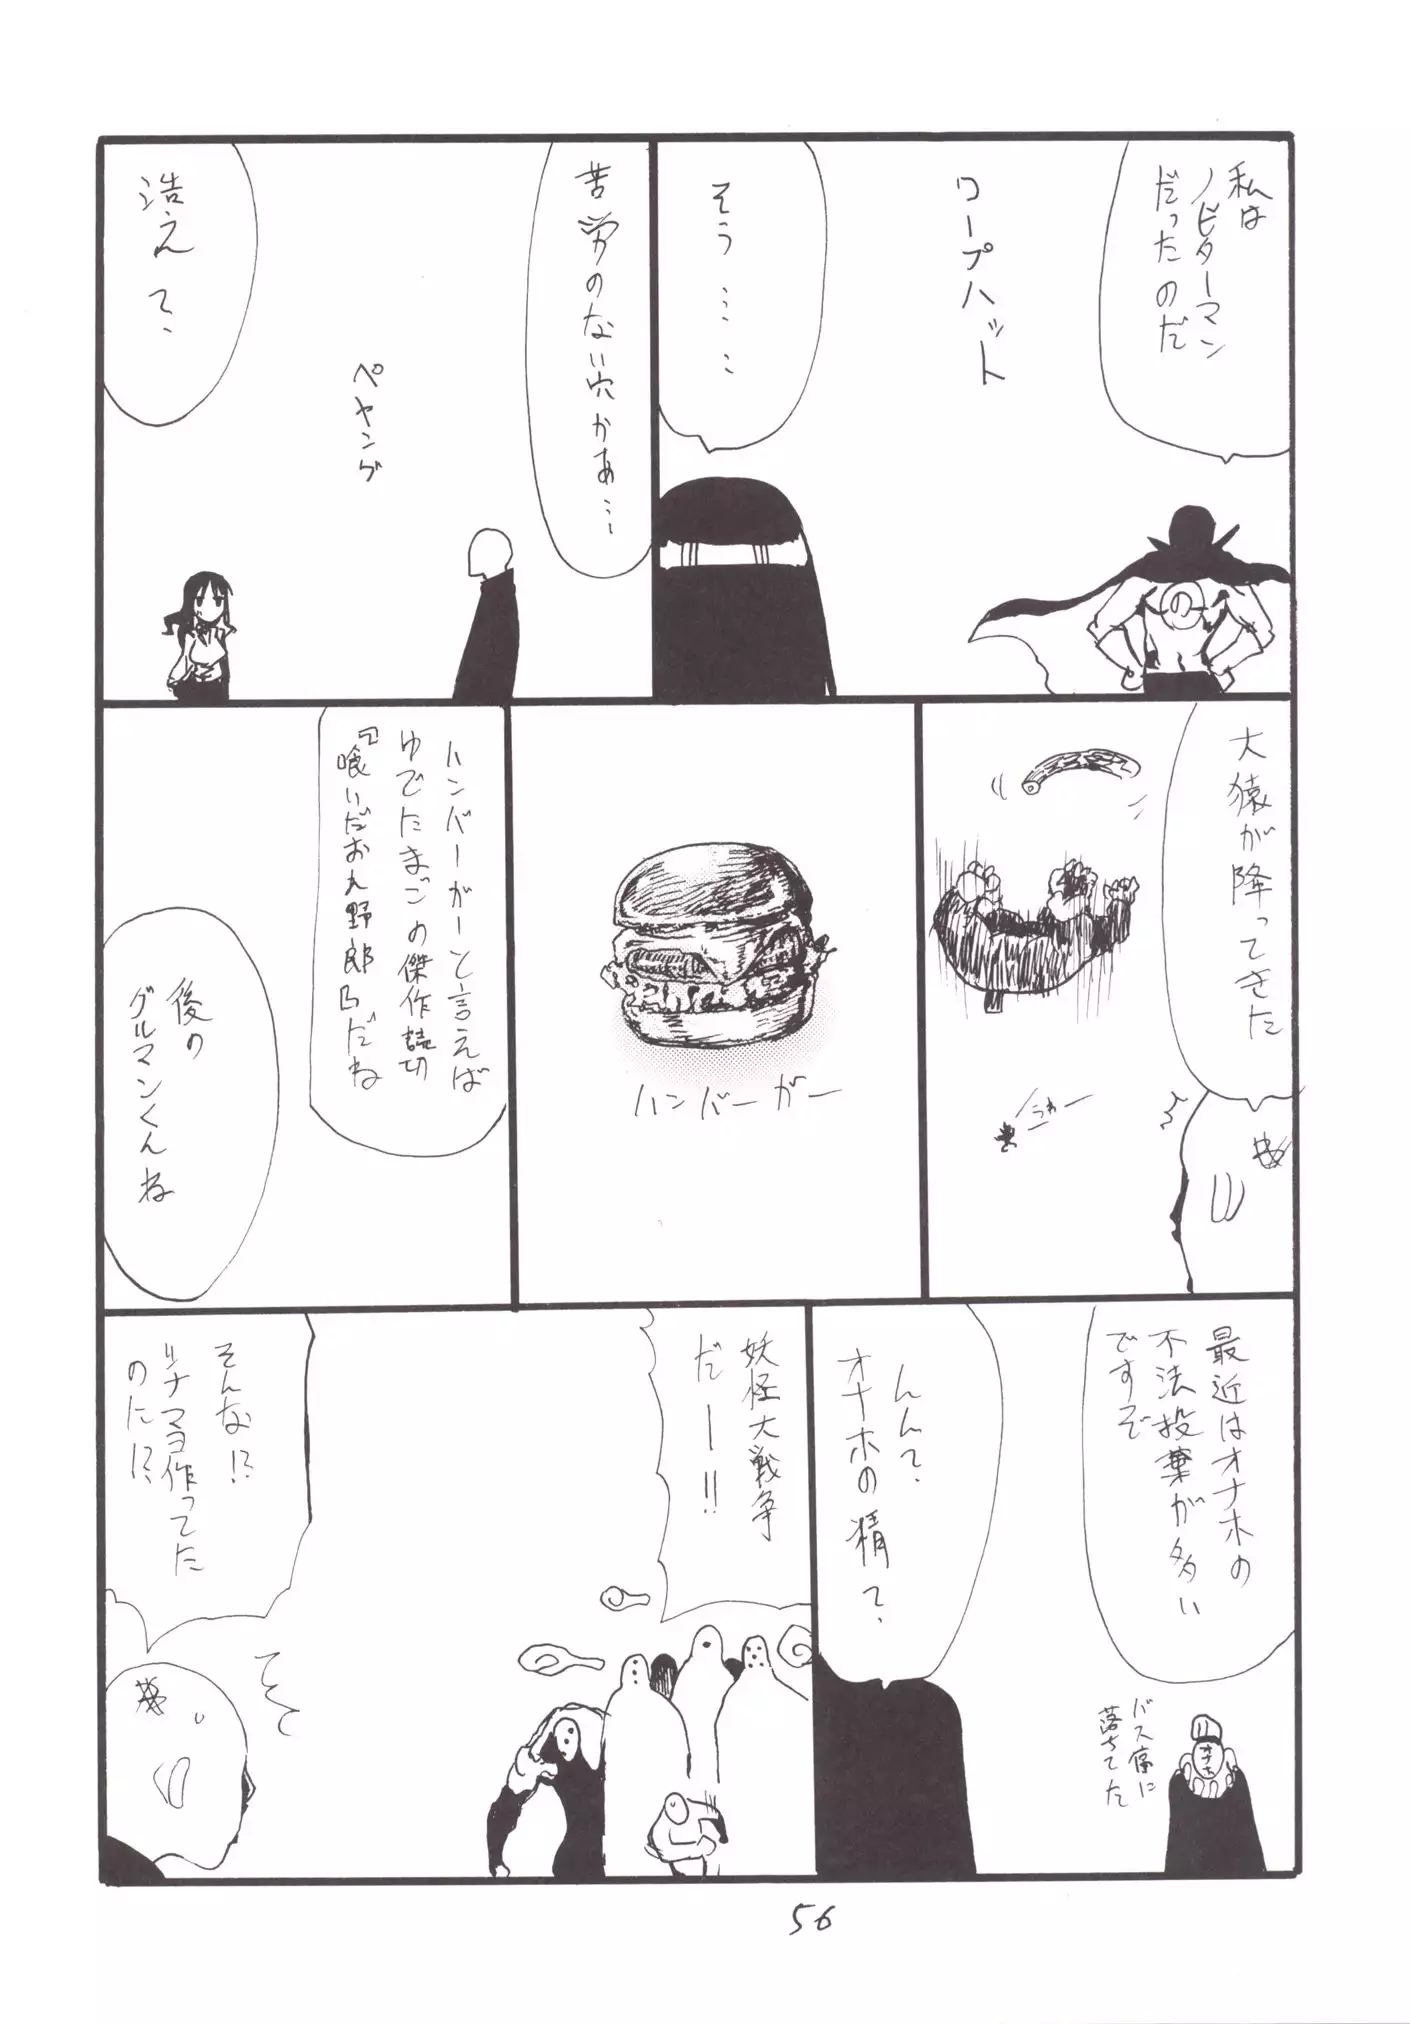 私は
ノビターマン
だったのだ
ワープハット
そう……
苦労のない穴かあ…
ペヤング
浩えて、
大猿が降ってきた
うわー
ハンバーガー
ハンバーガーと言えば
ゆでたまごの傑作読切
『喰いだお九野郎』だね
後の
グルマンくんね
最近はオナホの
不法投棄が多い
ですぞ
バス停に
落ちてた
オナホ
んんて、
オナホの精て、
妖怪大戦争
だー!!
そんな!?
ツナマヨ作ってた
のに!?
56